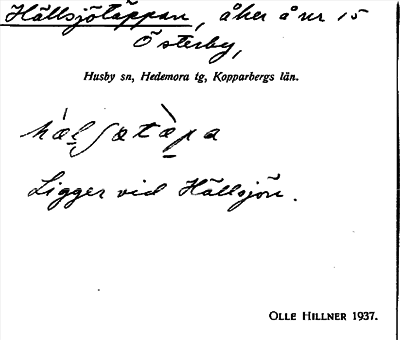 Hällsjötäppan, åker å nr 15
Österby,
Husby sn, Hedemora tg, Kopparbergs län.
hæ̀lʃætæ̀pa
Ligger vid Hällsjön.
OLLE HILLNER 1937.